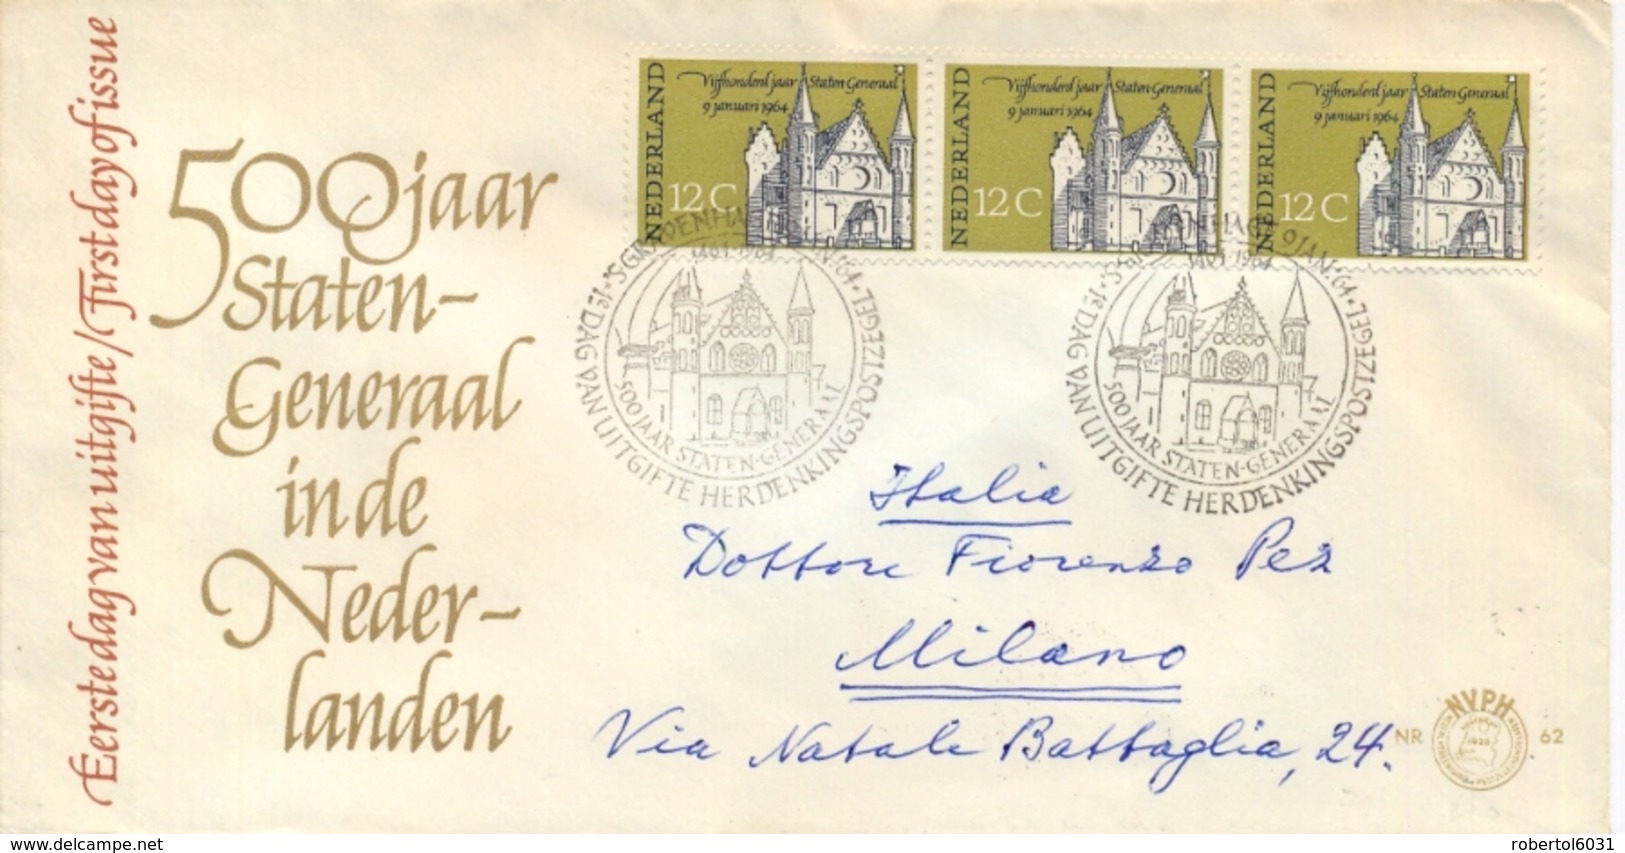 Eerste dag van uitgifte / First day of issue
500 jaar
Staten-
Generaal
in de
Neder-
landen
NEDERLAND
Vijfhonderd jaar Staten Generaal
9 januari 1964
12 C
NEDERLAND
Vijfhonderd jaar Staten-Generaal
9 januari 1964
12 C
NEDERLAND
Vijfhonderd jaar Staten-Generaal
9 januari 1964
12 C
'S-GRAVENHAGE 9 JAN. '64
1e DAG VAN UITGIFTE HERDENKINGSPOSTZEGEL
500 JAAR STATEN-GENERAAL
'S-GRAVENHAGE 9 JAN. '64
1e DAG VAN UITGIFTE HERDENKINGSPOSTZEGEL
500 JAAR STATEN-GENERAAL
Italia
Dottore Fiorenzo Pez
Milano
Via Natale Battaglia, 24.
NVPH
NR 62
1928
delcampe.net
robertol6031